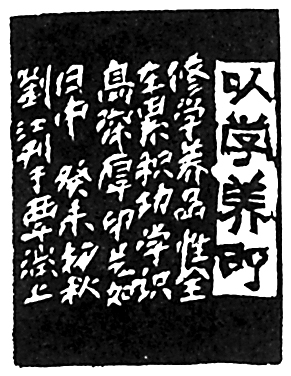 以学养印
修学养品性全
在累积功学识
高深厚印艺如
日中 癸未初秋
劉江刊于上